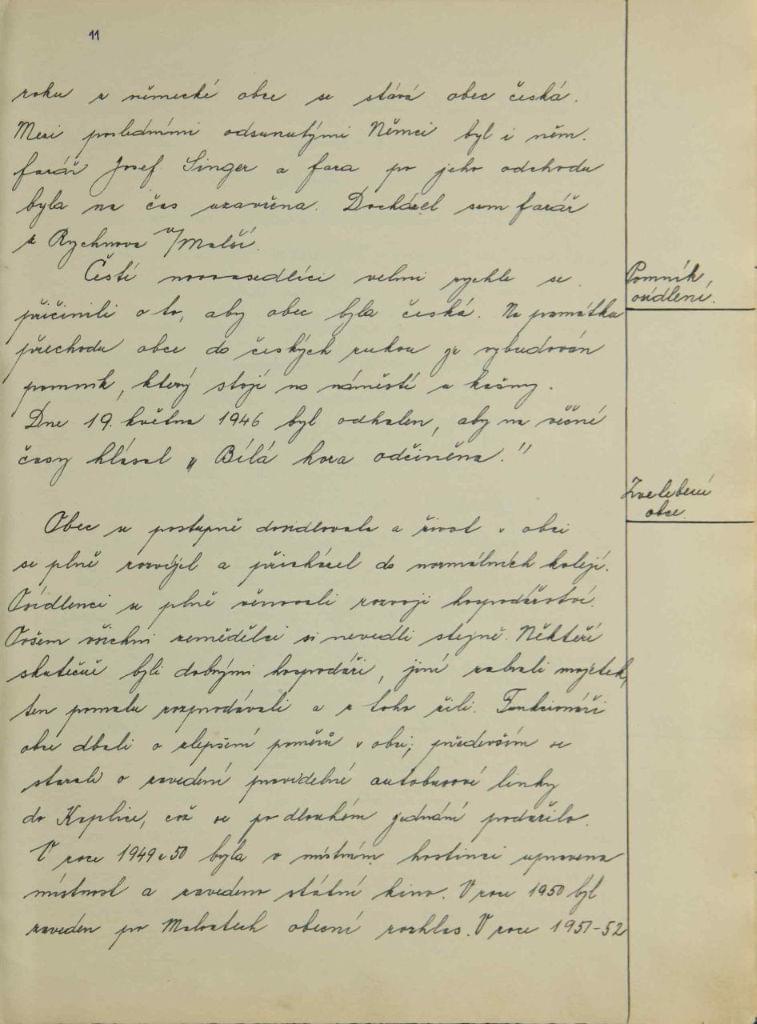 11
roku z německé obce se stává obec česká.
Mezi posledními odsunutými Němci byl i něm.
farář Josef Singer a fara po jeho odchodu
byla na čas uzavřena. Docházel sem farář
z Rychnova n/Malší.
Čestí novousedlíci velmi rychle se
Pomník
osídlení.
přičinili o to, aby obec byla česká. Na památku
přechodu obce do českých rukou je vybudován
pomník, který stojí na náměstí u kašny.
Dne 19. května 1946 byl odhalen, aby na věčné
časy hlásal „Bílá hora odčiněna."
Zvelebení
obce
Obec se postupně dosídlovala a život v obci
se plně rozvíjel a přicházel do normálních kolejí.
Osídlenci se plně věnovali rozvoji hospodářství.
Ovšem všichni zemědělci si nevedli stejně. Někteří
skutečně byli dobrými hospodáři, jiní zabrali majetek,
ten pomalu rozprodávali a z toho žili. Funkcionáři
obce dbali o zlepšení poměrů v obci, především se
starali o zavedení pravidelné autobusové linky
do Kaplice, což se po dlouhém jednání podařilo.
V roce 1949 a 50 byla v místním hostinci upravena
místnost a zavedeno státní kino. V roce 1950 byl
zaveden po Malontech obecní rozhlas. V roce 1951-52